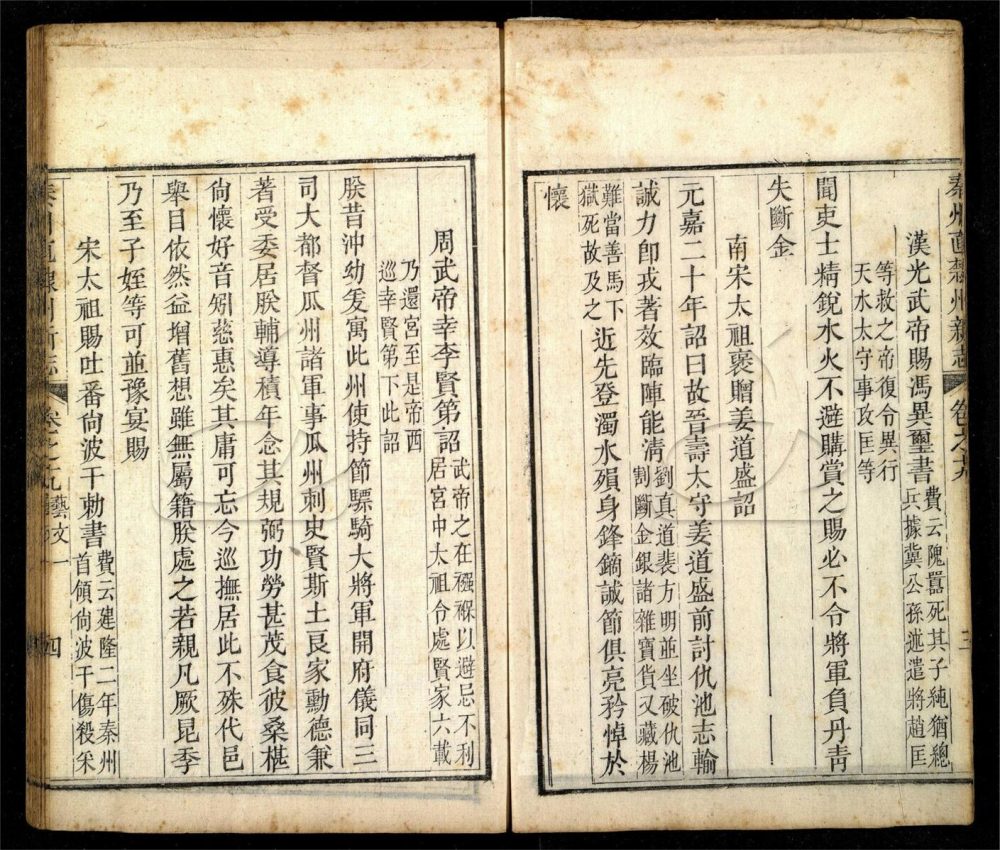 秦州直隸州新志 卷之十九 三
漢光武帝賜馮異璽書 費云隗囂死其子純猶總
兵據冀公孫述遣將趙匡
等救之帝復令異行
天水太守事攻匡等
聞吏士精銳水火不避購賞之賜必不令將軍負丹靑
失斷金
南宋太祖褒贈姜道盛詔
元嘉二十年詔曰故晉壽太守姜道盛前討仇池志輸
誠力卽戎著效臨陣能淸 劉真道裴方明並坐破仇池
割斷金銀諸雜寶貨又藏楊
難當善馬下
獄死故及之 近先登濁水殞身鋒鏑誠節俱亮矜悼於
懷
周武帝幸李賢第詔 武帝之在襁褓以避忌不利
居宮中太祖令處賢家六載
乃還宮至是帝西
巡幸賢第下此詔
朕昔沖幼爰寓此州使持節驃騎大將軍開府儀同三
司大都督瓜州諸軍事瓜州刺史賢斯土良家勳德兼
著受委居朕輔導積年念其規弼功勞甚茂食彼桑椹
尙懷好音矧慈惠矣其庸可忘今巡撫居此不殊代邑
舉目依然益增舊想雖無屬籍朕處之若親凡厥昆季
乃至子姪等可並豫宴賜
宋太祖賜吐番尙波干勅書 費云建隆二年秦州
首領尙波干傷殺采
秦州直隸州新志 卷之十九 藝文一 四